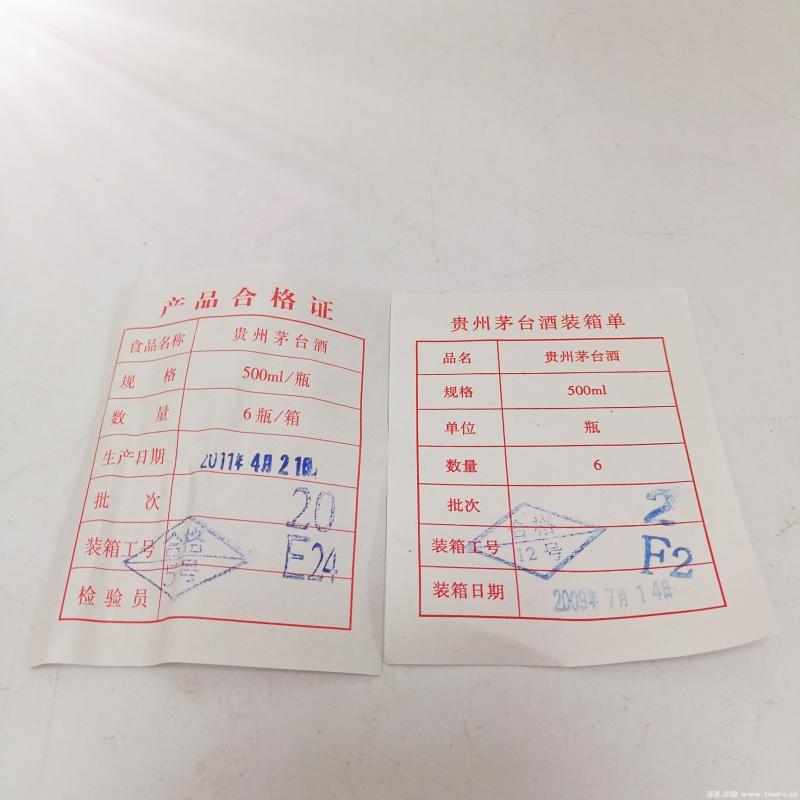 产品合格证
食品名称 贵州茅台酒
规格 500ml/瓶
数量 6瓶/箱
生产日期 2011年4月21日
批次 20
装箱工号 E24
合格
5号
检验员
贵州茅台酒装箱单
品名 贵州茅台酒
规格 500ml
单位 瓶
数量 6
批次 2
合格
12号
装箱工号 F2
装箱日期 2009年7月14日